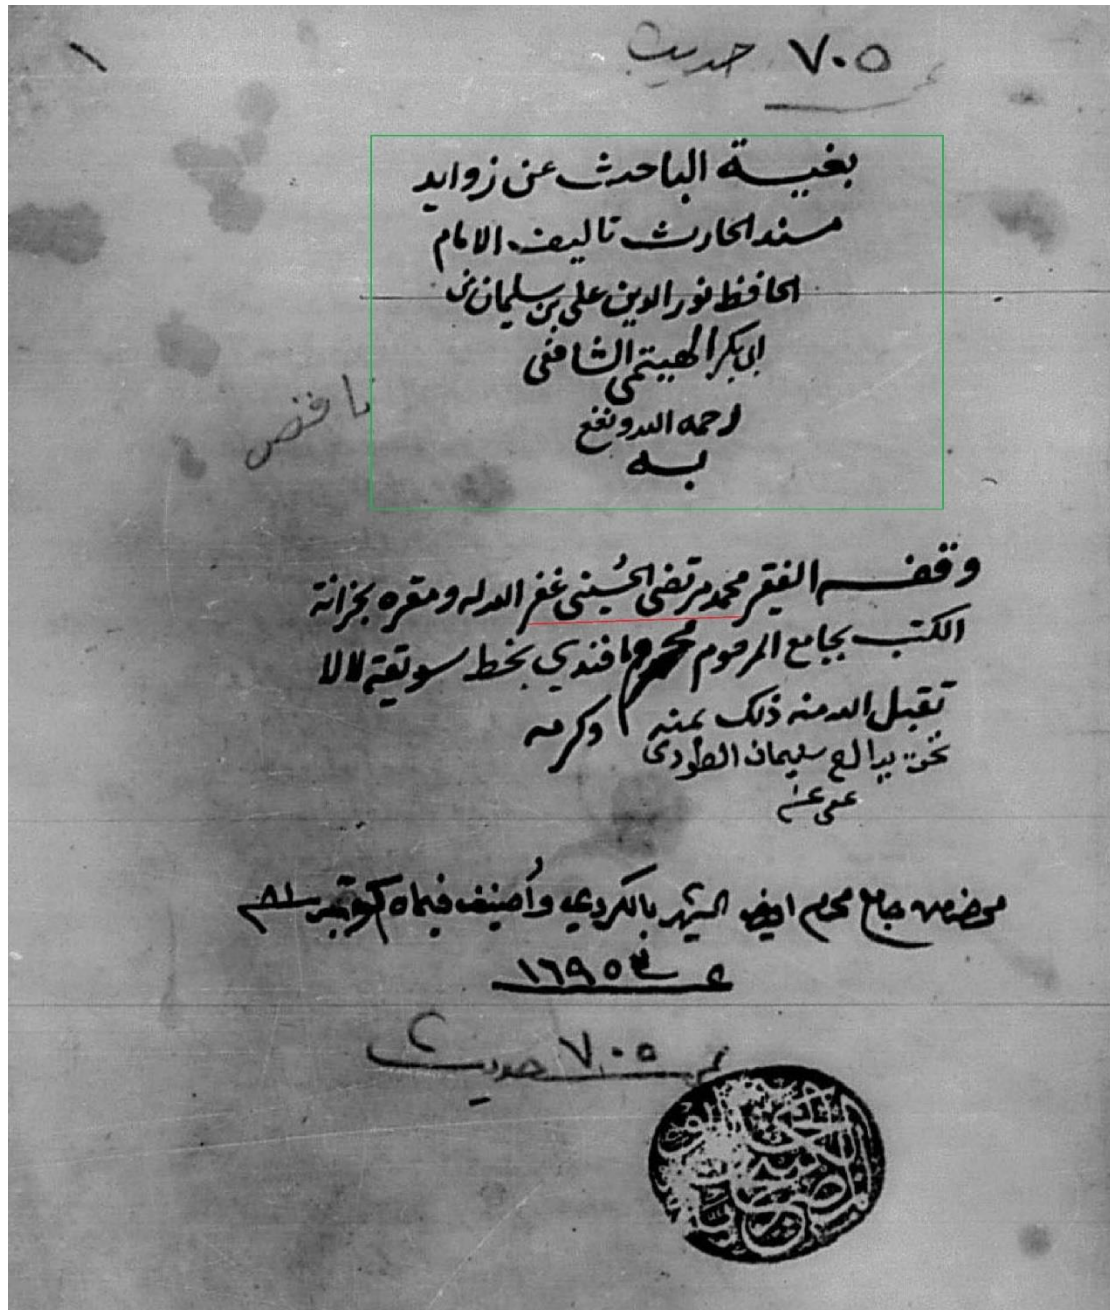 ٧٠٥ حديث
١
بغية الباحث عن زوايد
مسند الحارث تاليف الامام
الحافظ نور الدين على بن سليمان بن
ابى بكر الهيتمى الشافعى
رحمه الله ونفع
به
ناقص
وقفه الفقير محمد مرتضى الحسينى غفر الله له ومقره بخزانة
الكتب بجامع المرحوم محرم افندي بخط سويقة لالا
تقبل الله منه ذلك بمنه وكرمه
سليمان
عفى عنه
من جامع محرم الشهير بالكردي واضيف في
١٦٩٥
٧٠٥ حديث